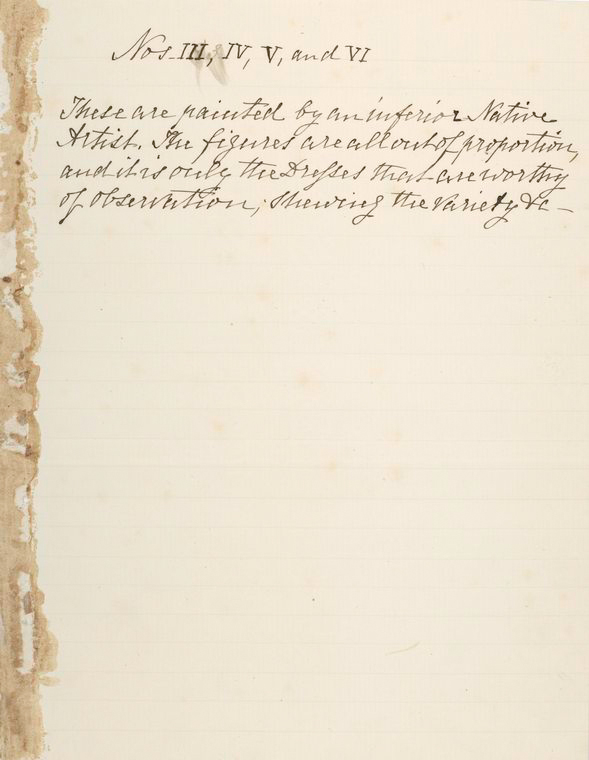 Nos. III, IV, V, and VI
These are painted by an inferior Native
Artist. The figures are all out of proportion,
and it is only the Dresses that are worthy
of observation, shewing the variety &c –